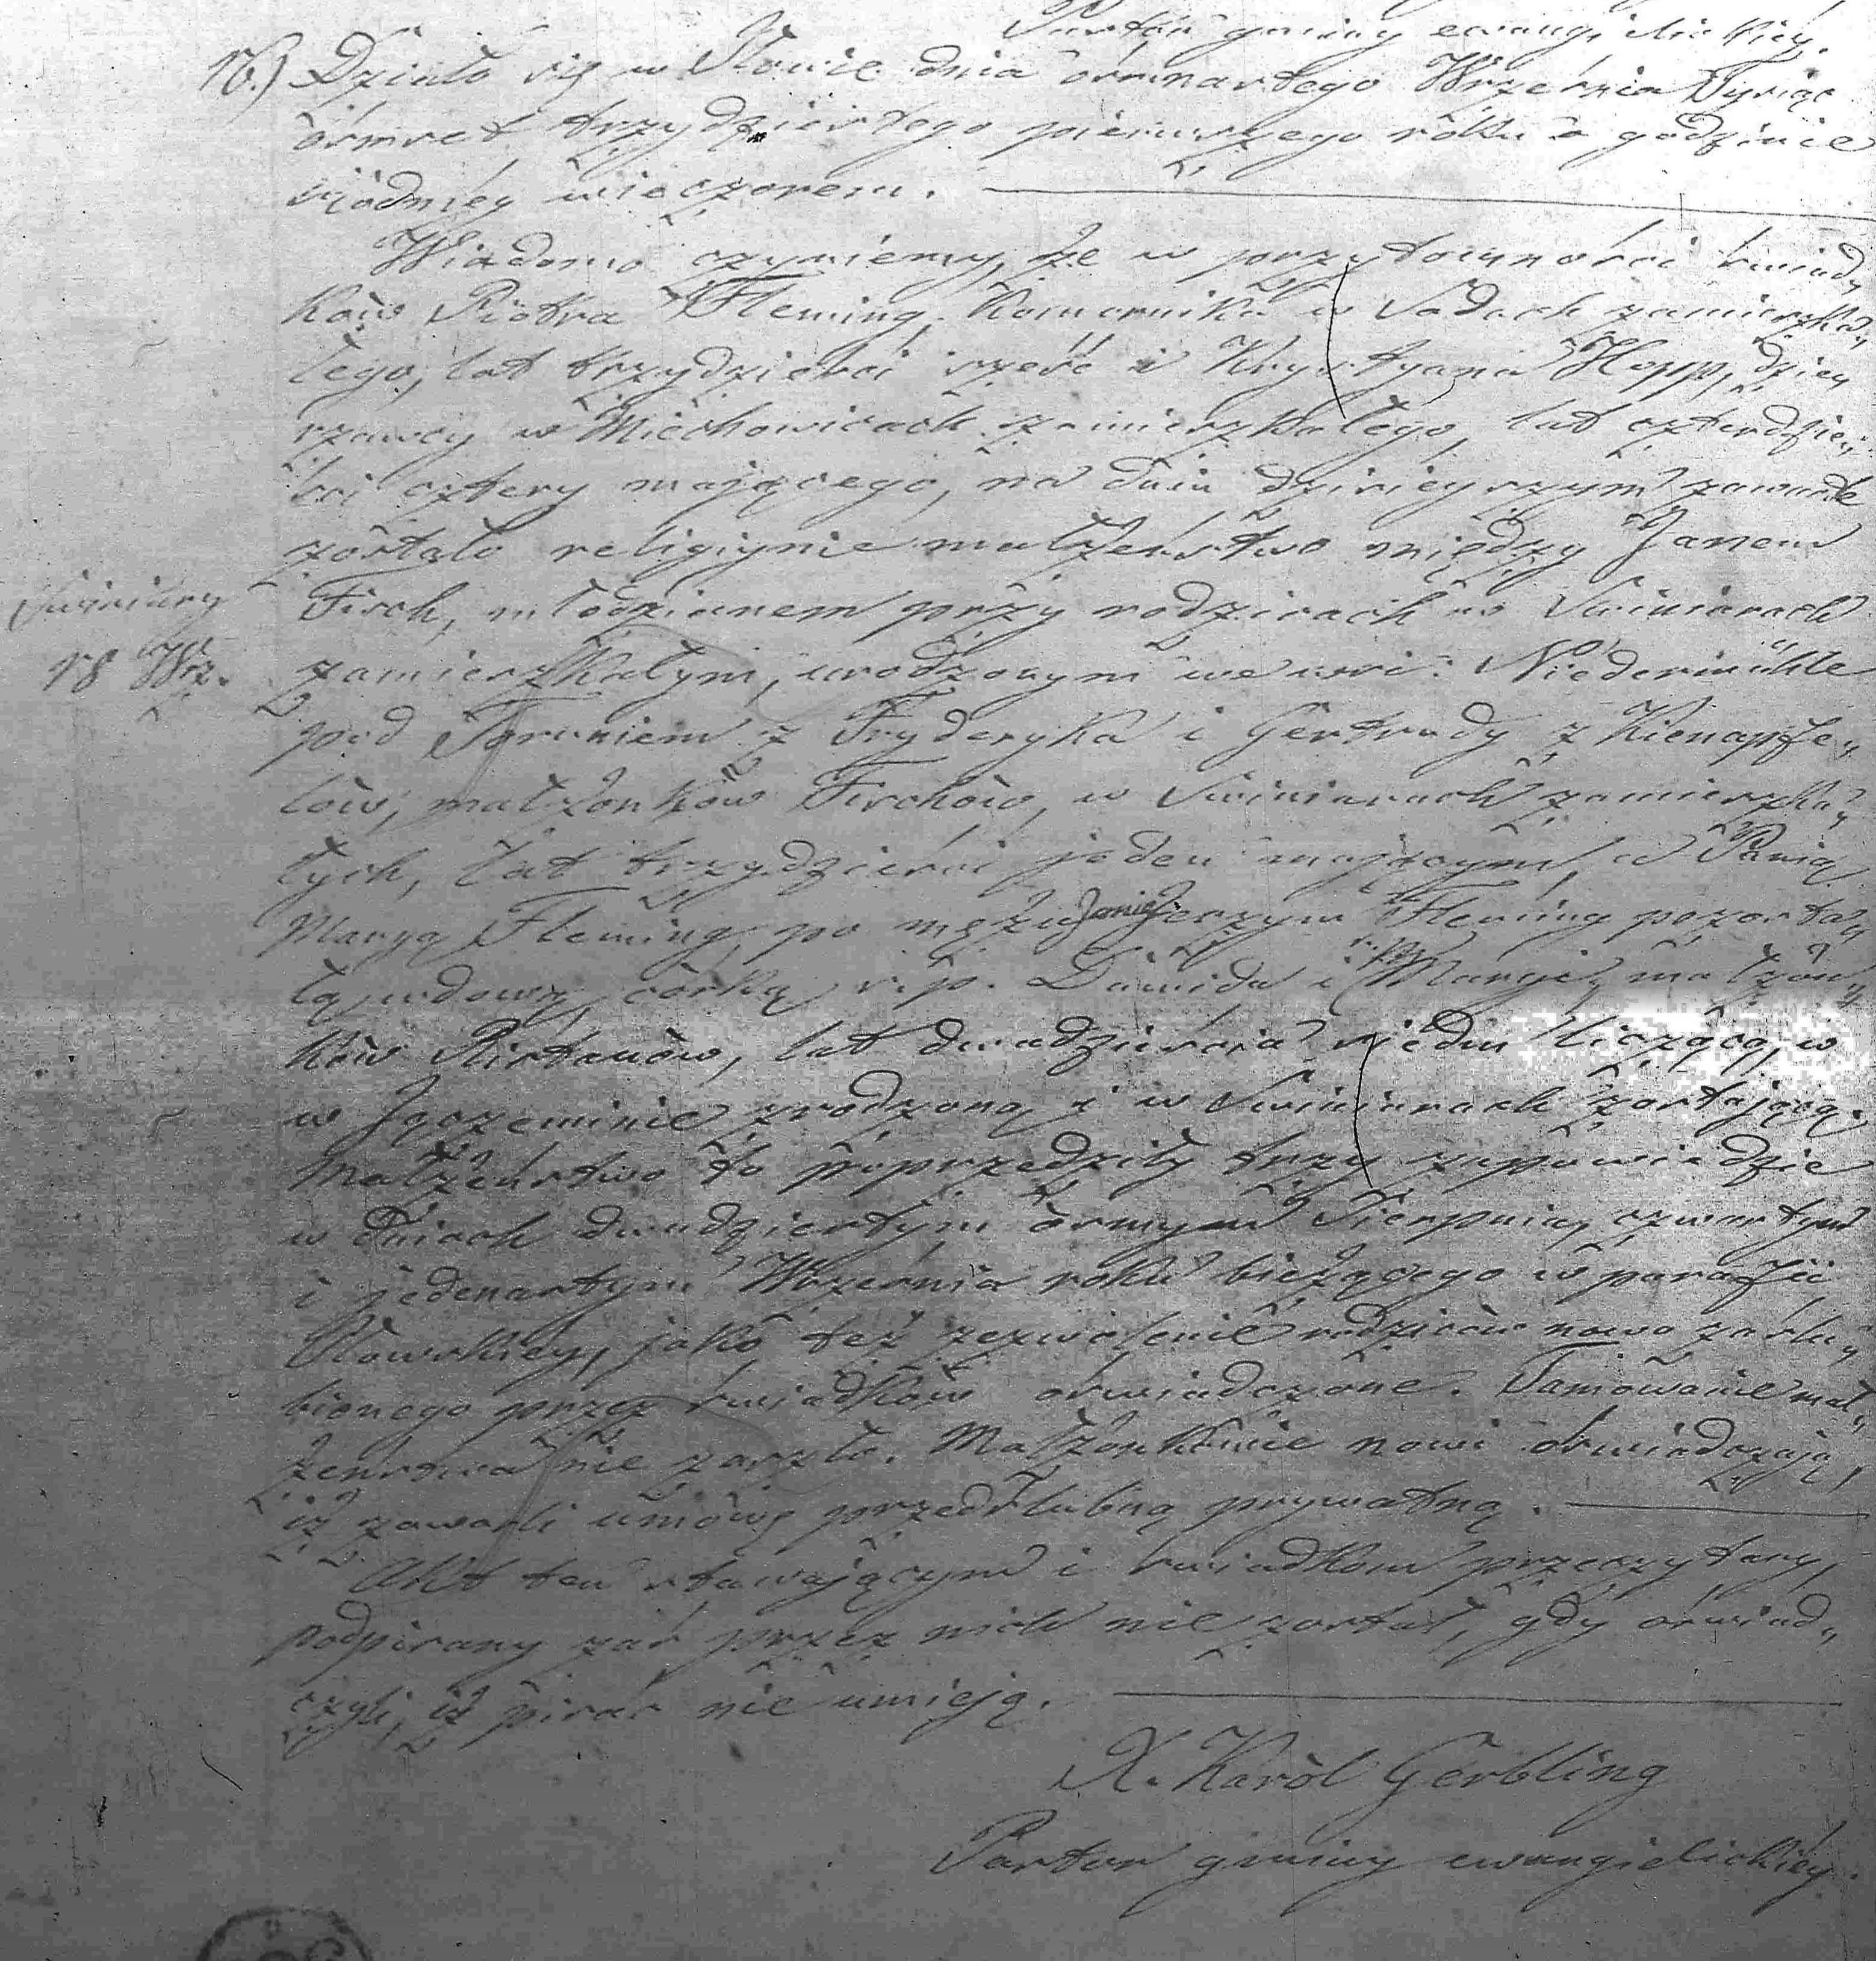 Pastor gminy ewangielickiey.
16.) Działo się w Słowie dnia ośmnastego Września Tysiąc
ośmset trzydziestego pierwszego roku o godzinie
siódméy wieczorem.
Wiadomo czyniemy, że w przytomności świad„
ków Piotra Fleming, Komornika w Sadach zamieszka„
łego, lat trzydzieści sześć i Krystyana Hopp, dzier„
rzawcy w Miechowicach zamieszkałego, lat czterdzie„
ści cztery mającego, na dniu dzisieyszym zawarte
zostało religiynie małżeństwo między Janem
Firch, młodzianem przy rodzicach w Swiniarach
Swiniary
18 Wrz.
zamieszkałym, urodzonym we wsi: Niedermühle
pod Toruniem z Fryderyka i Gertrudy z Kienapfe„
lów, małżonków Firchów, w Swiniarach zamieszka„
łych, lat trzydzieści jeden mającym, a Panią
Maryą Fleming, po mężu Jerzym Fleming pozosta„
łą wdową, córką ś. p. Dawida i ś. p. Maryi, małżon„
ków Pirtanów, lat dwadzieścia siedm liczącą, w
w Jączeminie zrodzoną i w Swiniarach zostającą.
Małżeństwo to poprzedziły trzy zapowiedzie
w dniach dwudziestym ósmym Sierpnia, czwartym
i jedenastym Września roku bieżącego w parafii
Słowskiey, jako też zezwolenie rodziców nowo zaślu„
bionego przez świadków oświadczone. Tamowanie mał„
żeństwa nie zaszło. Małżonkowie nowi oświadczają,
iż zawarli umowę przedślubną prywatną.
Akt ten stawającym i świadkom przeczytany,
podpisany zaś przez nich nie został, gdy oświad„
czyli, iż pisać nie umieją.
X. Karól Gerbling
Pastor gminy ewangielickiéy.